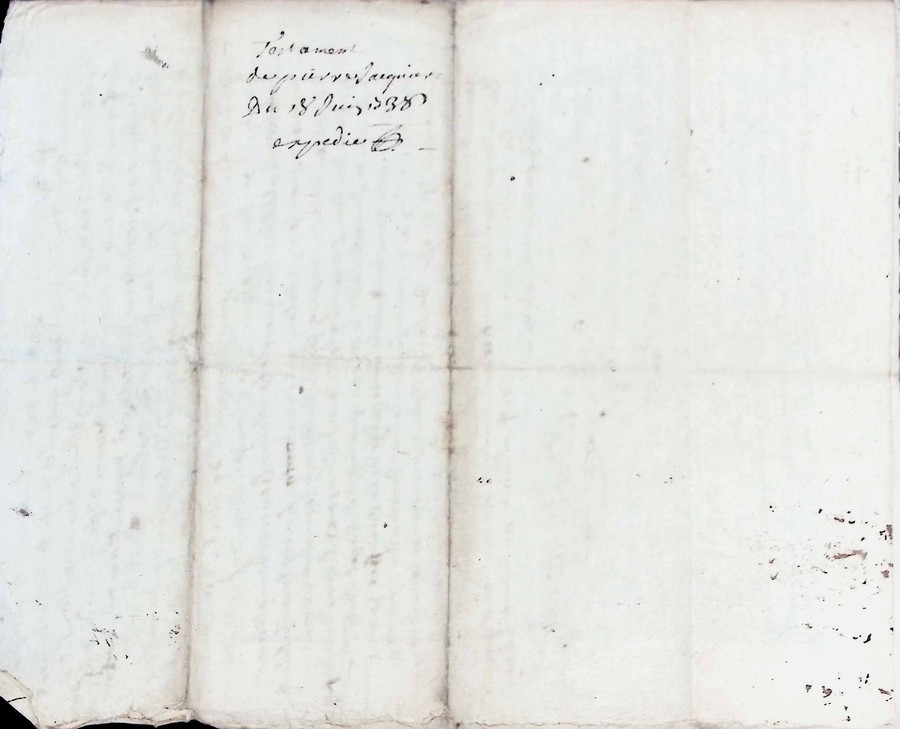 Testament
de pierre Jacquier
Du 18 Juin 1738
expedié